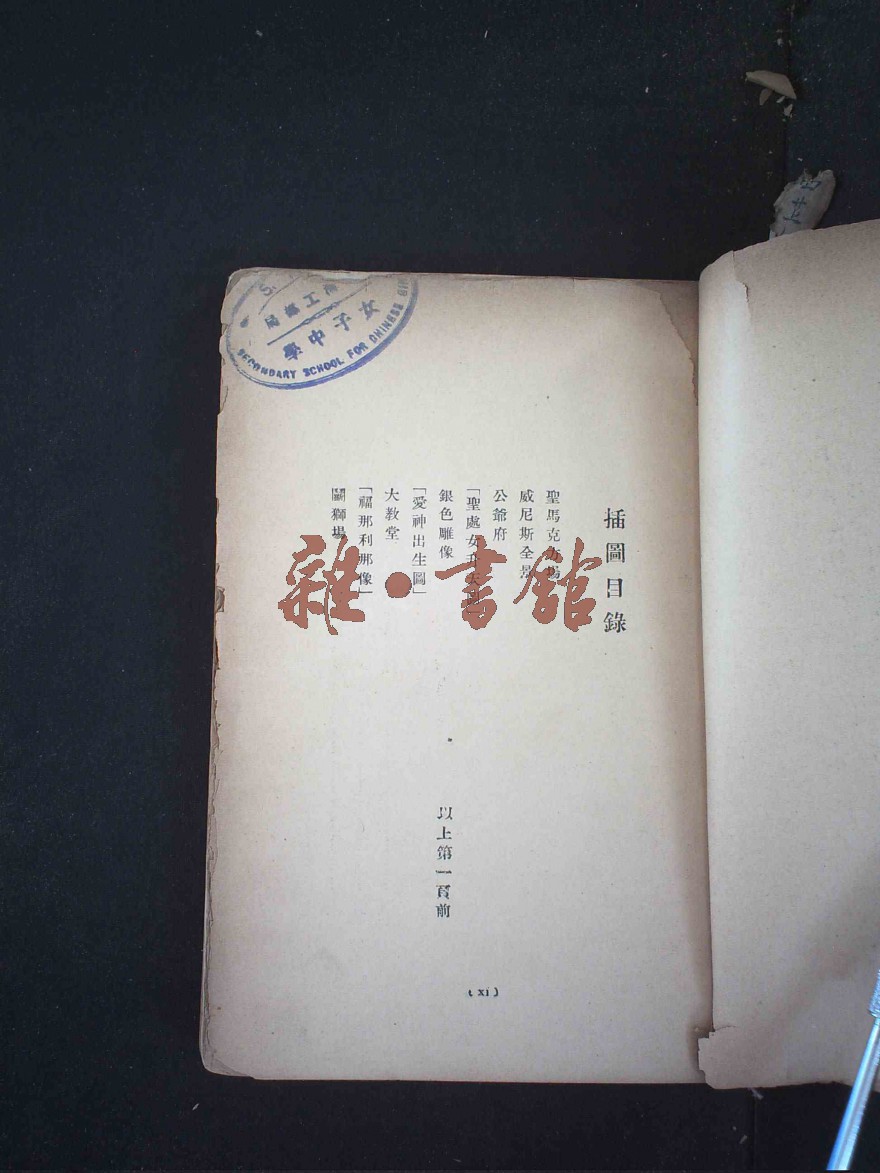 插圖目錄
聖馬克方場
威尼斯全景
公爺府
「聖處女升天圖」
銀色雕像
「愛神出生圖」
大教堂
「福那利那像」
鬭獅場
以上第一頁前
( xi )
工部局
女子中學
SECONDARY SCHOOL FOR CHINESE
雜·書館